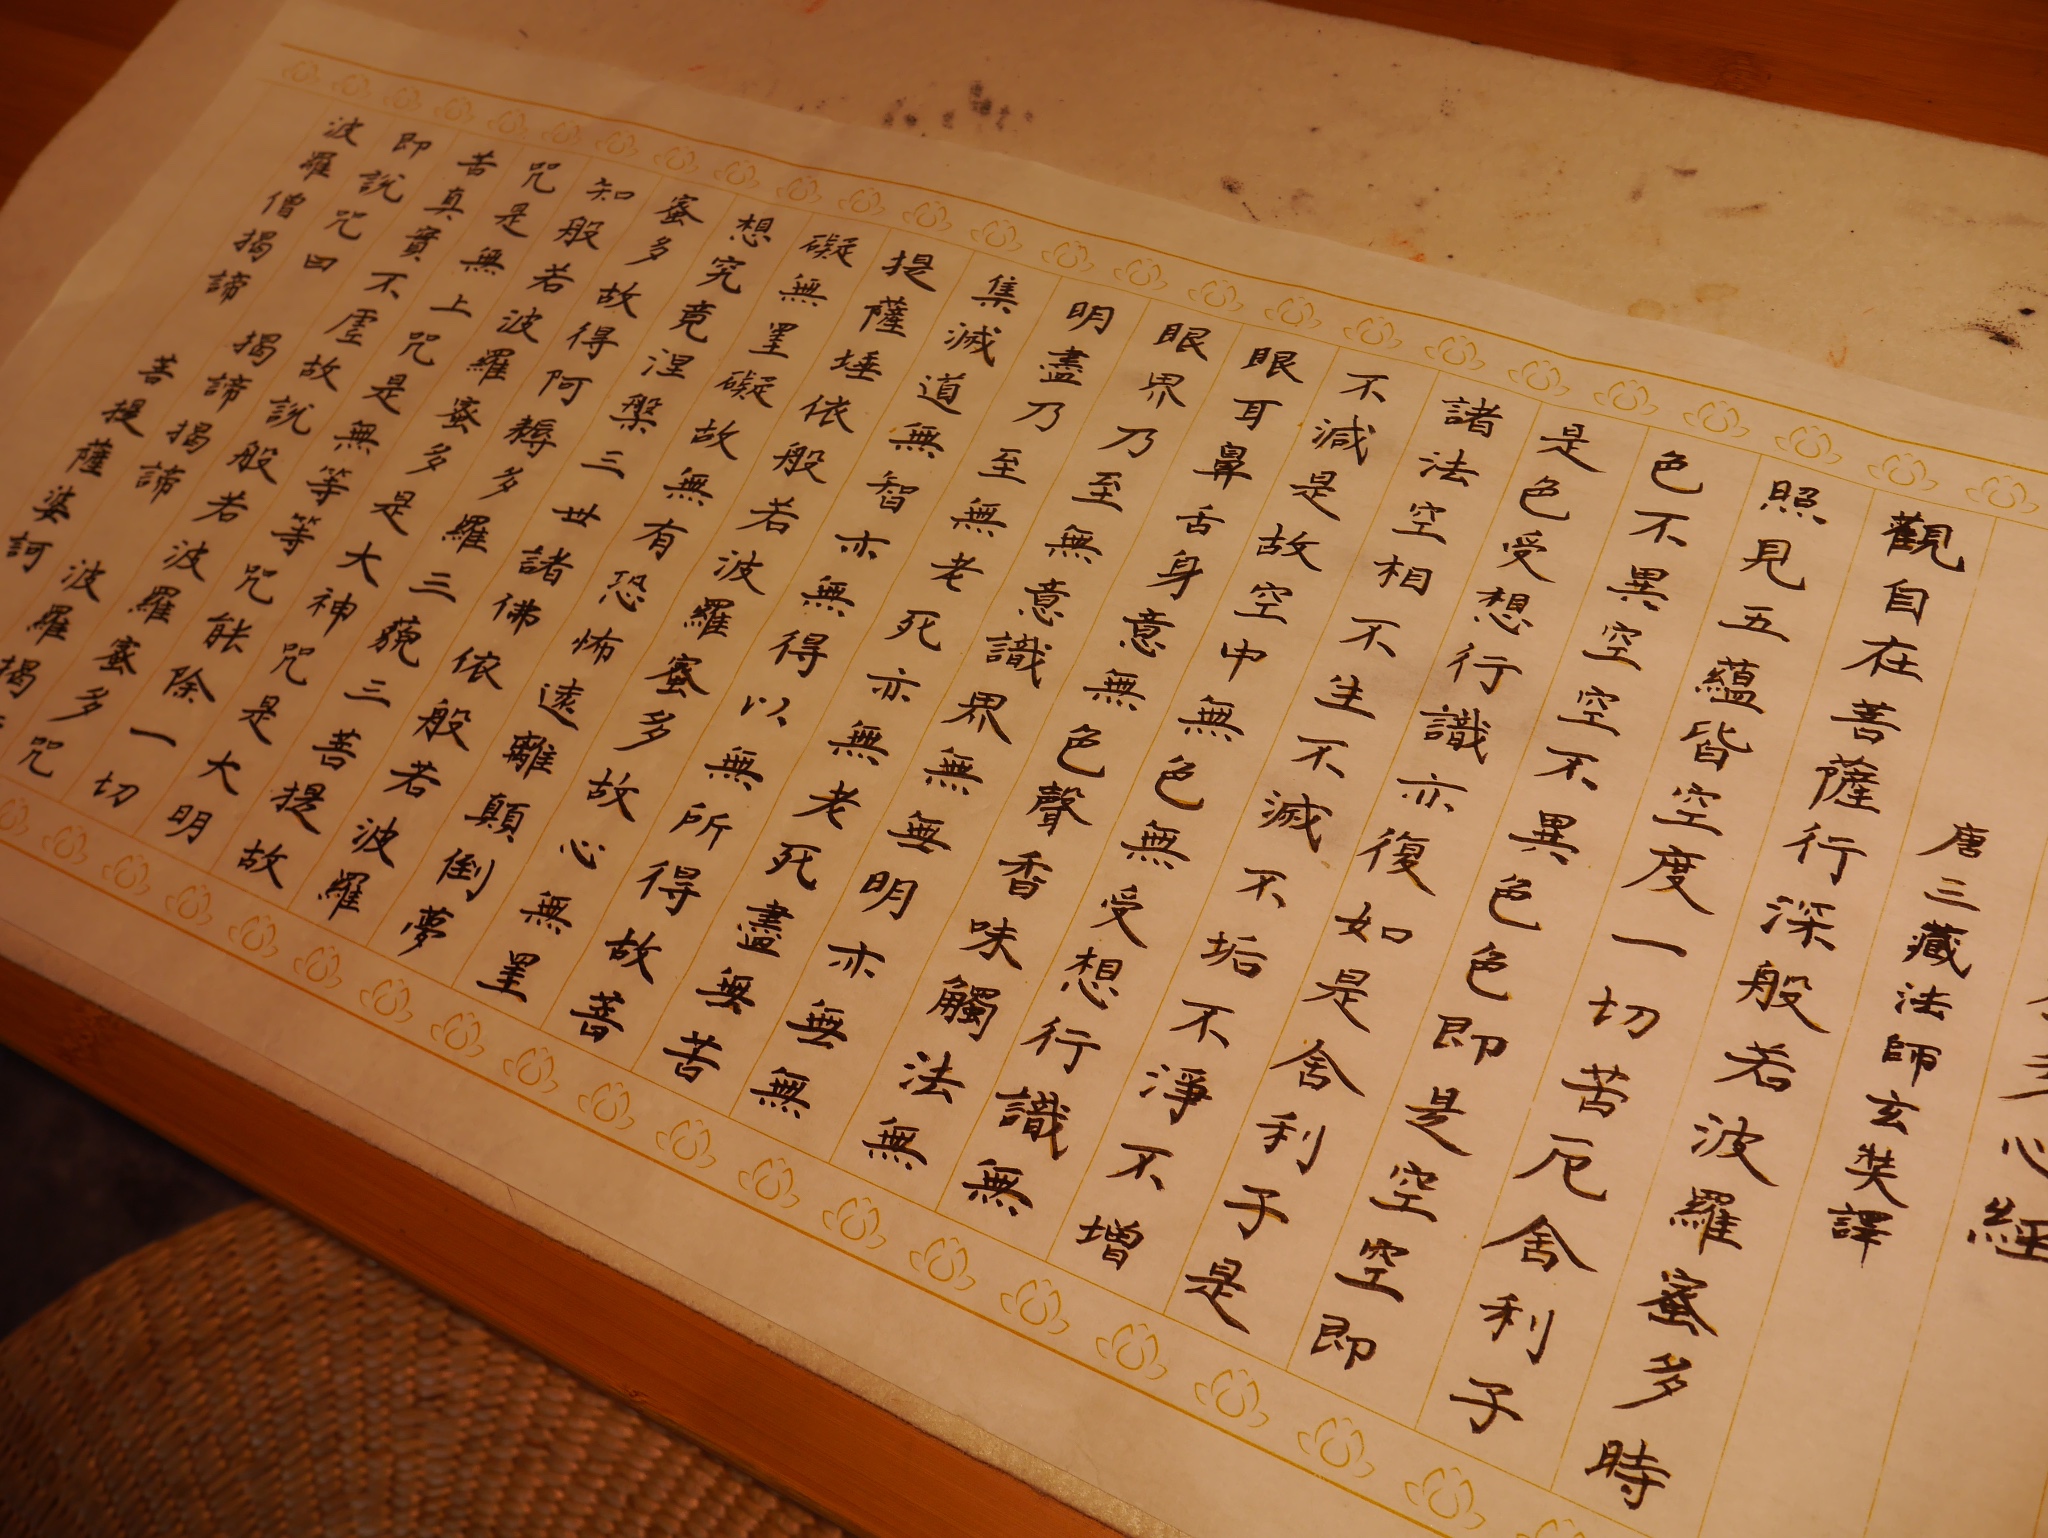 心經
唐三藏法師玄奘譯
觀自在菩薩行深般若波羅蜜多時
照見五蘊皆空度一切苦厄舍利子
色不異空空不異色色即是空空即
是色受想行識亦復如是舍利子是
諸法空相不生不滅不垢不淨不增
不減是故空中無色無受想行識無
眼耳鼻舌身意無色聲香味觸法無
眼界乃至無意識界無無明亦無無
明盡乃至無老死亦無老死盡無苦
集滅道無智亦無得以無所得故菩
提薩埵依般若波羅蜜多故心無罣
礙無罣礙故無有恐怖遠離顛倒夢
想究竟涅槃三世諸佛依般若波羅
蜜多故得阿耨多羅三藐三菩提故
知般若波羅蜜多是大神咒是大明
咒是無上咒是無等等咒能除一切
苦真實不虛故說般若波羅蜜多咒
即說咒曰 揭諦揭諦 波羅揭
波羅僧揭諦 菩提薩婆訶